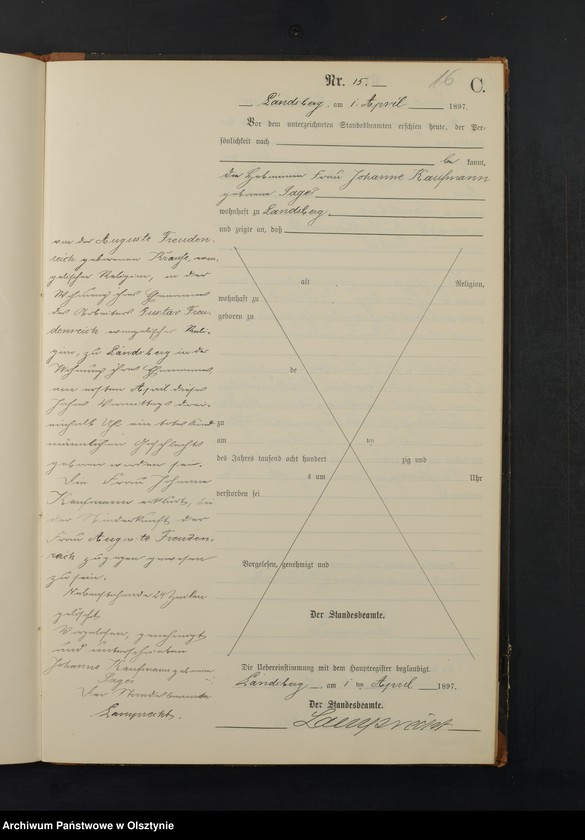 Nr. 15.
16
C.
Landsberg, am 1. April 1897.
Vor dem unterzeichneten Standesbeamten erschien heute, der Per-
sönlichkeit nach
be kannt,
die Hebamme Frau Johanne Kaufmann
geborene Sager
wohnhaft zu Landsberg,
und zeigte an, daß
von der Auguste Freuden-
reich geborenen Krause, evan-
gelischer Religion, in der
Wohnung ihres Ehemannes
des Arbeiters Gustav Freu-
denreich evangelischer Reli-
gion, zu Landsberg in der
Wohnung ihres Ehemannes,
am ersten April dieses
Jahres Vormittags drei-
einhalb Uhr ein totes Kind
männlichen Geschlechts
geboren worden sei.
Die Frau Johanne
Kaufmann erklärt, bei
der Niederkunft der
Frau Auguste Freuden-
reich zugegen gewesen
zu sein.
Nebenstehende 24 Zeilen
gelöscht
Vorgelesen, genehmigt
und unterschrieben
Johanne Kaufmann geborene
Sager
Der Standesbeamte
Lamprecht.
alt Religion,
wohnhaft zu
geboren zu
de
zu
am ten
des Jahres tausend acht hundert zig und
s um Uhr
verstorben sei
Vorgelesen, genehmigt und
Der Standesbeamte.
Die Uebereinstimmung mit dem Hauptregister beglaubigt.
Landsberg, am 1 ten April 1897.
Der Standesbeamte.
Lamprecht
Archiwum Państwowe w Olsztynie